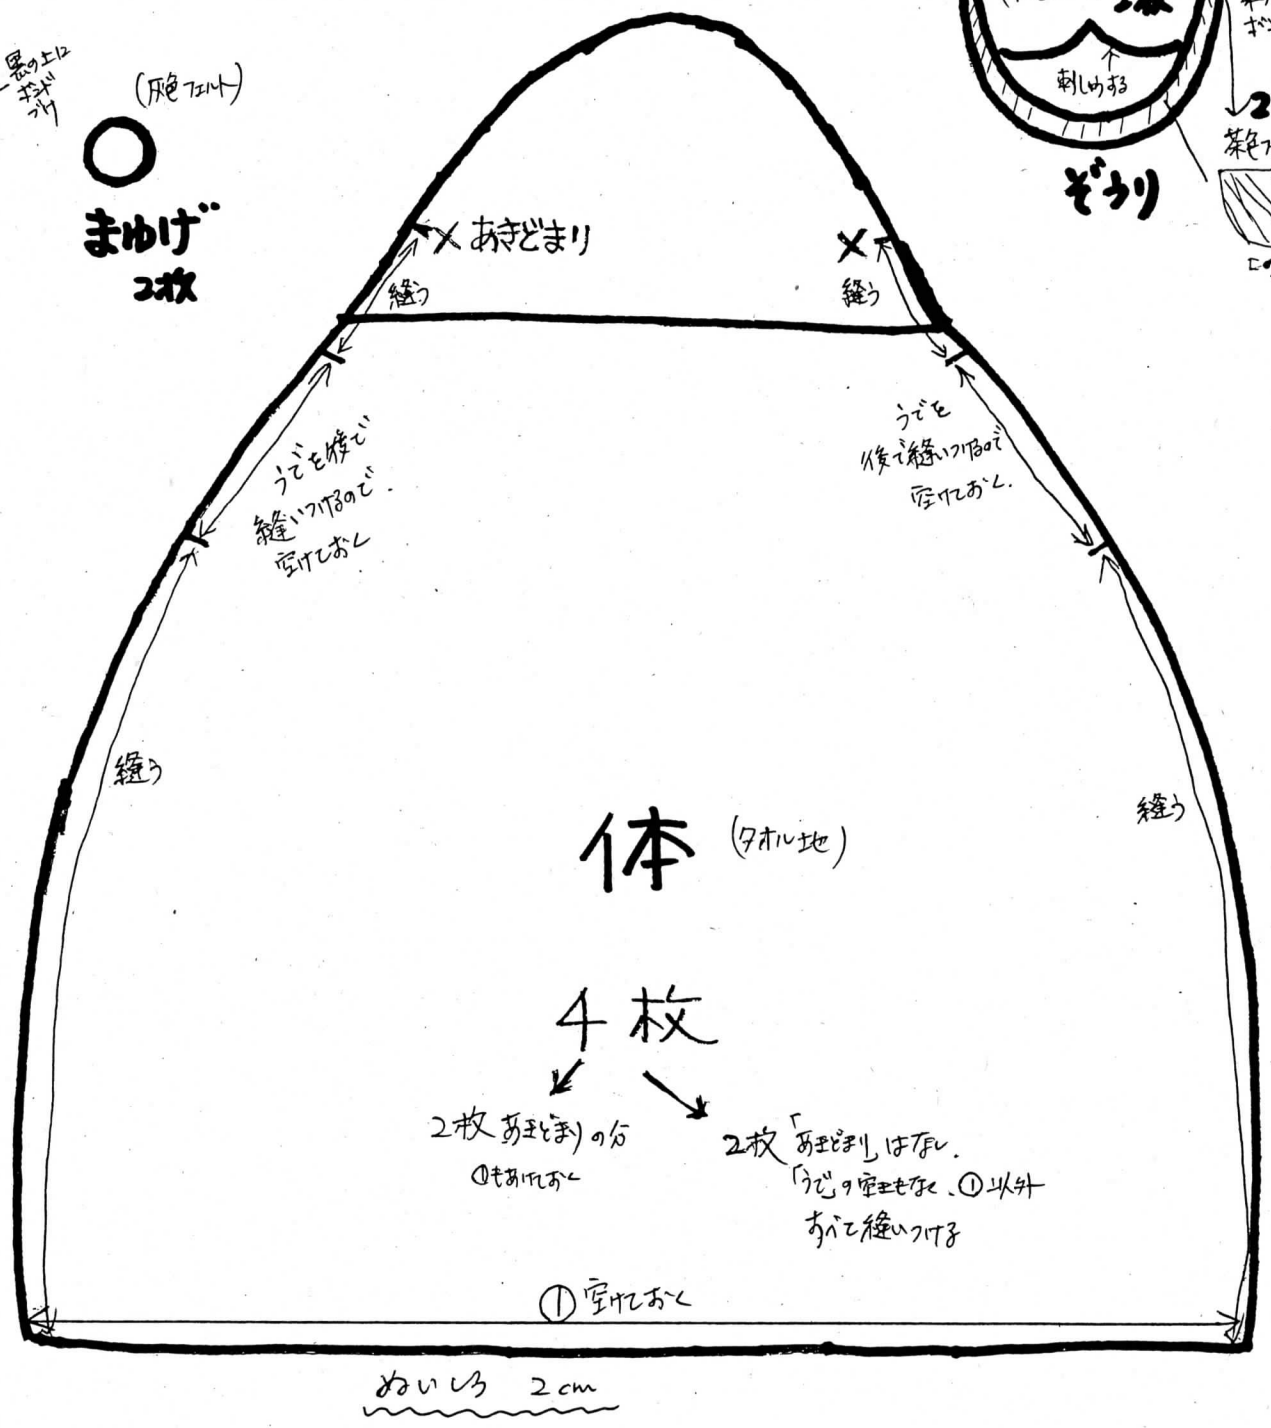 黒の上に
ボンド
づけ
(灰色フェルト)
まゆげ
2枚
2枚
刺しゅうする
ぞうり
茶色フ
×あきどまり
×
縫う
縫う
うでを後で
縫いつけるので.
空けておく
うでを
後で縫いつけるので
空けておく.
縫う
縫う
体 (タオル地)
4枚
2枚 あきどまりの分
①もあけておく
2枚「あきどまり」はなし.
「うで」の空きもなく、①以外
すべて縫いつける
① 空けておく
ぬいしろ 2cm